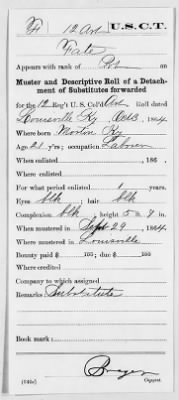 F | 12 Art | U.S.C.T.
Fate
Appears with rank of Pvt on
Muster and Descriptive Roll of a Detach-
ment of Substitutes forwarded
for the 12 Reg't U. S. Col'd Art Roll dated
Louisville Ky Oct 3, 1864.
Where born Ky
Age 21 y'rs; occupation Laborer
When enlisted , 186 .
Where enlisted
For what period enlisted 1 years.
Eyes blk ; hair blk
Complexion blk ; height 5 ft. 9 in.
When mustered in Sept 29, 1864.
Where mustered in Louisville
Bounty paid $ 100; due $ 100
Where credited
Company to which assigned
Remarks: Substitute
Book mark:
(746c) Copyist.